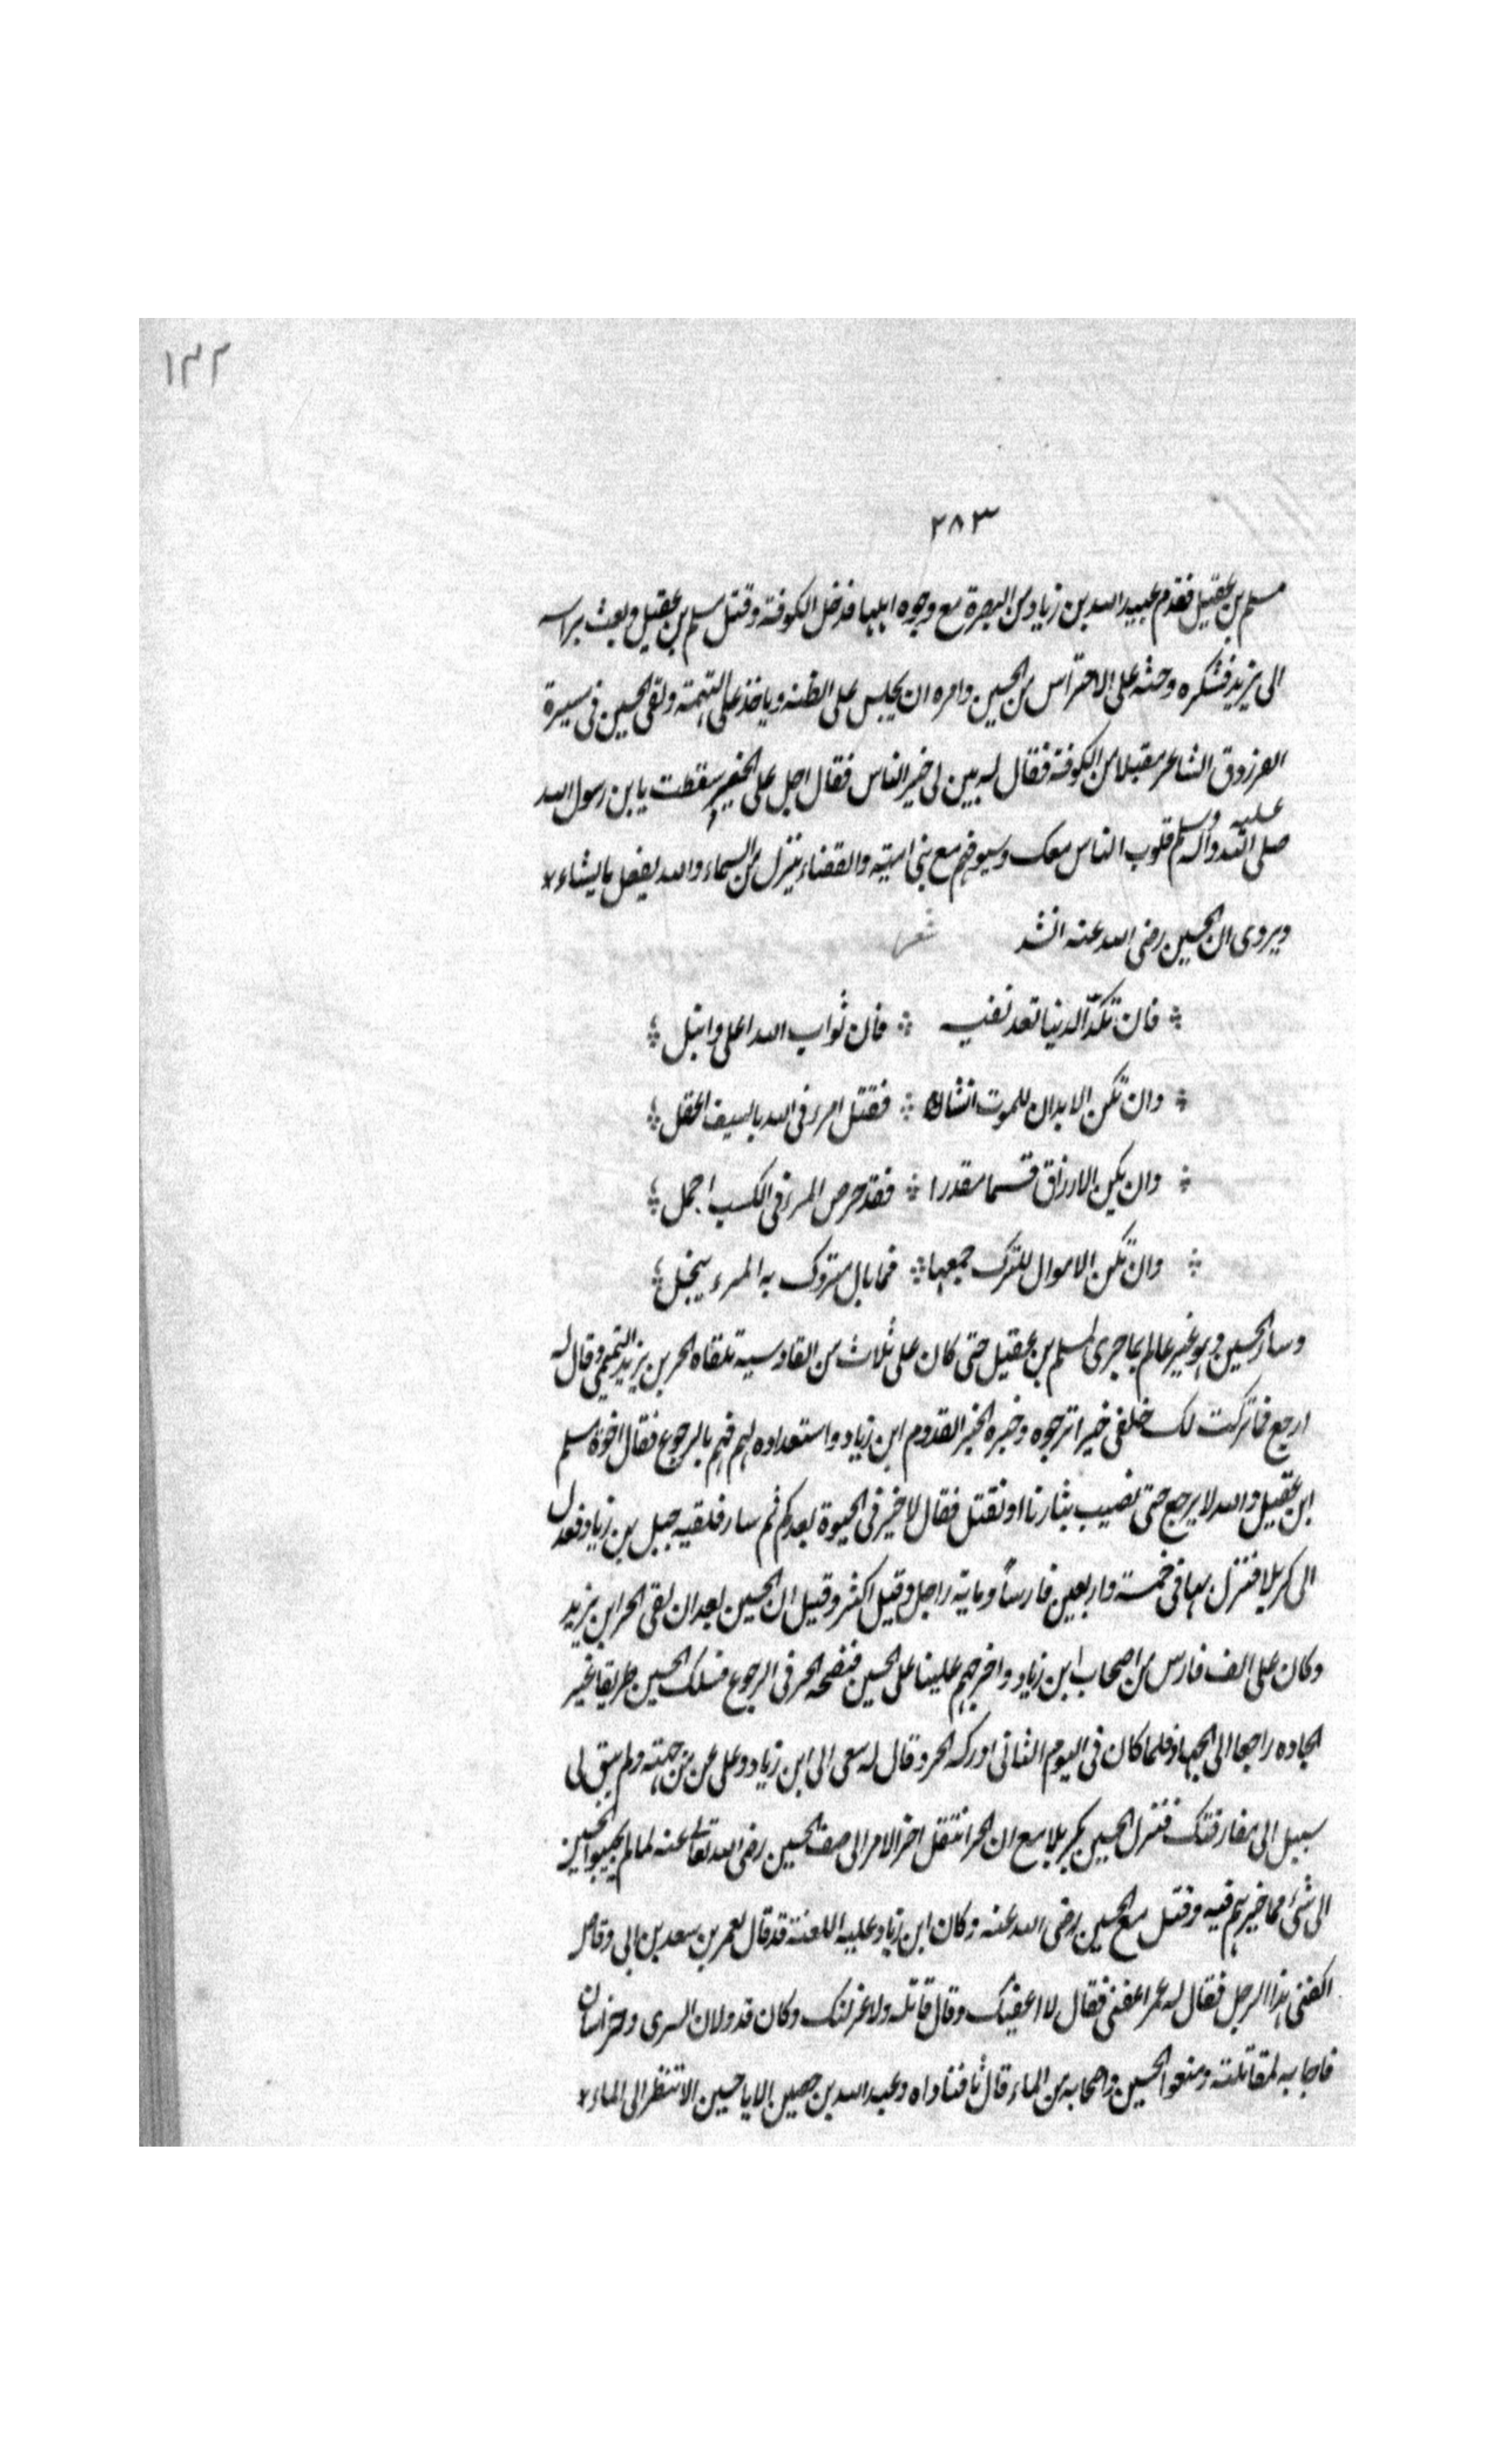 ١٣٢
٢٨٣
مسلم بن عقيل فقدم عبيد الله بن زياد من البصرة مع وجوه اهلها فدخل الكوفة وقتل مسلم بن عقيل وبعث براسه
الى يزيد فشكره وحثه على الاحتراس من الحسين وامره ان يحبس على الظنه وياخذ على التهمة ولقى الحسين فى مسيرة
الفرزدق الشاعر مقبلا من الكوفة فقال له بين لى خبر الناس فقال اجل على الخبير سقطت يا بن رسول الله
صلى الله عليه وآله وسلم قلوب الناس معك وسيوفهم مع بنى امية والقضاء ينزل من السماء والله يفعل ما يشاء
ويروى ان الحسين رضى الله عنه انشد شعر
فان تكن الدنيا تعد نفيسه فان ثواب الله اعلى وانبل
وان تكن الابدان للموت انشات فقتل امرء فى الله بالسيف افضل
وان يكن الارزاق قسما مقدرا فقد حرص المرء فى الكسب اجمل
وان تكن الاموال للترك جمعها فما بال متروك به المرء يبخل
وسار الحسين وهو غير عالم بما جرى لمسلم بن عقيل حتى كان على ثلاث من القادسية تلقاه الحر بن يزيد التميمى وقال له
ارجع فما تركت لك خلفى خيرا ترجوه وخبره الخبر القدوم ابن زياد واستعداده لهم فهم بالرجوع فقال اخوة مسلم
ابن عقيل والله لا يرجع حتى نصيب بثارنا او نقتل فقال لا خير فى الحيوة بعدكم ثم سار فلقيه جبل بن زياد فعدل
الى كربلا فنزل بها فى خمسة واربعين فارسا ومايه راجل وقيل اكثر وقيل ان الحسين بعد ان لقى الحر ابن يزيد
وكان على الف فارس من اصحاب ابن زياد واخرجهم علينا على الحسين فنصحه الحر فى الرجوع فسلك الحسين طريقا غير
الجاده راجعا الى الحجاز فلما كان فى اليوم الثانى ادركه الحر وقال له سعى الى ابن زياد وعلى عين من جهته ولم يبق لى
سبيل الى مفارقتك فنزل الحسين بكربلا مع ان الحر انتقل اخر الامر الى صف الحسين رضى الله تعالى عنه لما لم يجيبوا الحسين
الى شئ مما خيرهم فيه وقتل مع الحسين رضى الله عنه وكان ابن زياد عليه اللعنة قد قال لعمر بن سعد بن ابى وقاص
اكفنى هذا الرجل فقال له عمر اعفنى فقال لا اعفيك وقال قاتله ولا عزلتك وكان قد ولان السرى وخراسان
فاجابه لمقاتلته ومنعوا الحسين واصحابه من الماء قال فناداه وعبد الله بن حصين الا يا حسين الا تنظر الى الماء